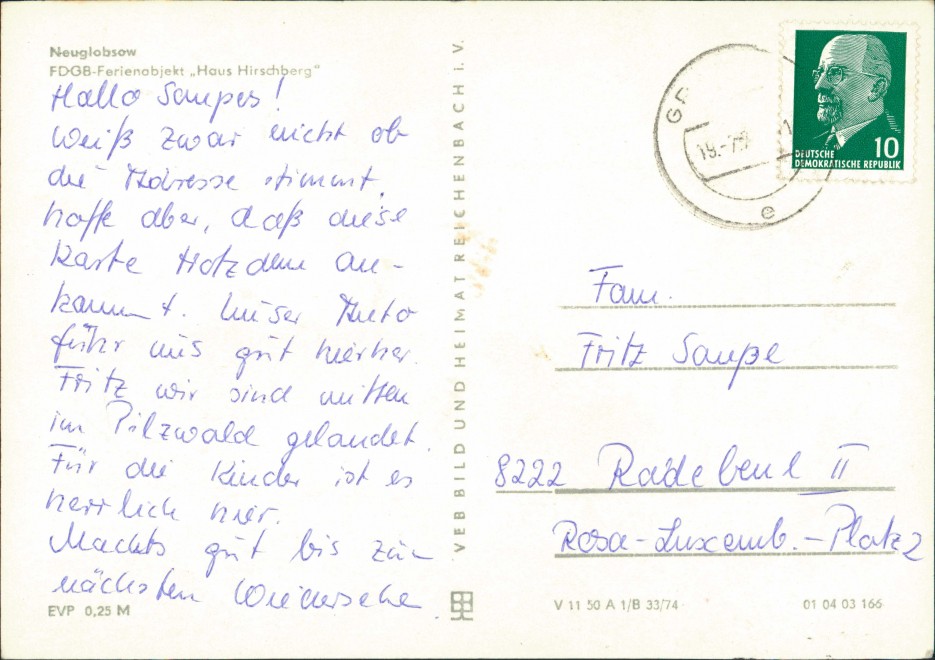 Neuglobsow
FDGB-Ferienobjekt „Haus Hirschberg"
Hallo Saupes!
Weiß zwar nicht ob
die Adresse stimmt,
hoffe aber, daß diese
Karte trotzdem an-
kommt. Unser Auto
fuhr uns gut hierher.
Fritz wir sind mitten
im Pilzwald gelandet.
Für die Kinder ist es
herrlich hier.
Machts gut bis zum
nächsten Wiedersehn
EVP 0,25 M
VEB BILD UND HEIMAT REICHENBACH I. V.
19.-7
e
10
DEUTSCHE
DEMOKRATISCHE REPUBLIK
Fam.
Fritz Saupe
8222 Radebeul II
Rosa-Luxemb.-Platz 2
V 11 50 A 1/B 33/74
01 04 03 166